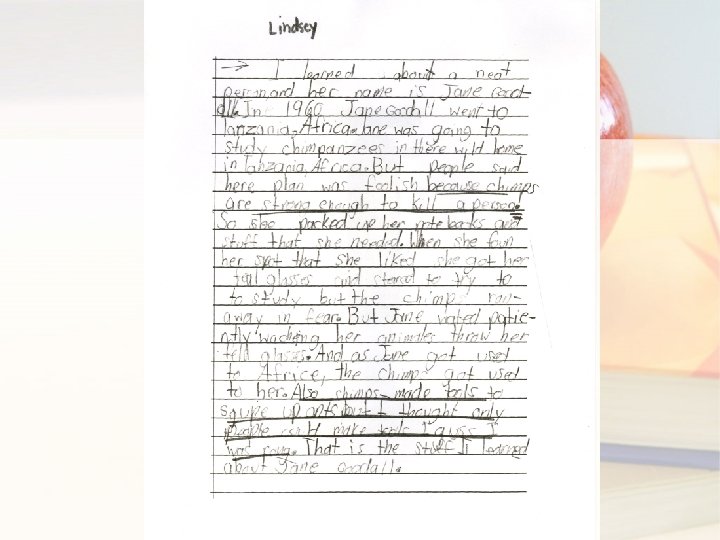 Lindsey
→ I learned about a neat
person and her name is Jane Good-
all. In 1960 Jane Goodall went to
Tanzania, Africa. Jane was going to
study chimpanzees in there wild home
in Tanzania, Africa. But people said
here plan was foolish because chimps
are strong enough to kill a person.
So she packed up her notebooks and
stuff that she needed. When she foun
her spot that she liked she got her
glasses and stared to try to
to study but the chimp ran-
away in fear. But Jane waited patie-
ntly waching her animals threw her
glasses. And as Jane got used
to Africe, the chimp got used
to her. Also chimps made tools to
up ants but I thought only
people can make tools I guss I
was rong. That is the stuff I learned
about Jane Goodall.